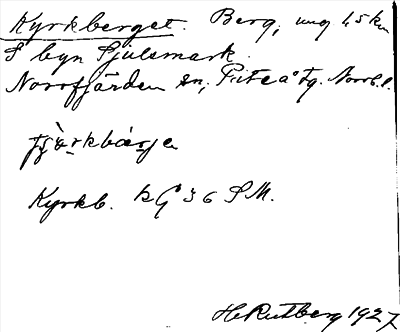 Kyrkberget. Berg, ung 1,5 km
S byn Sjulsmark.
Norrfjärden sn, Piteå tg. Norrb. l.
Kyrkb. kG 36 SM.
H Rutberg 1927